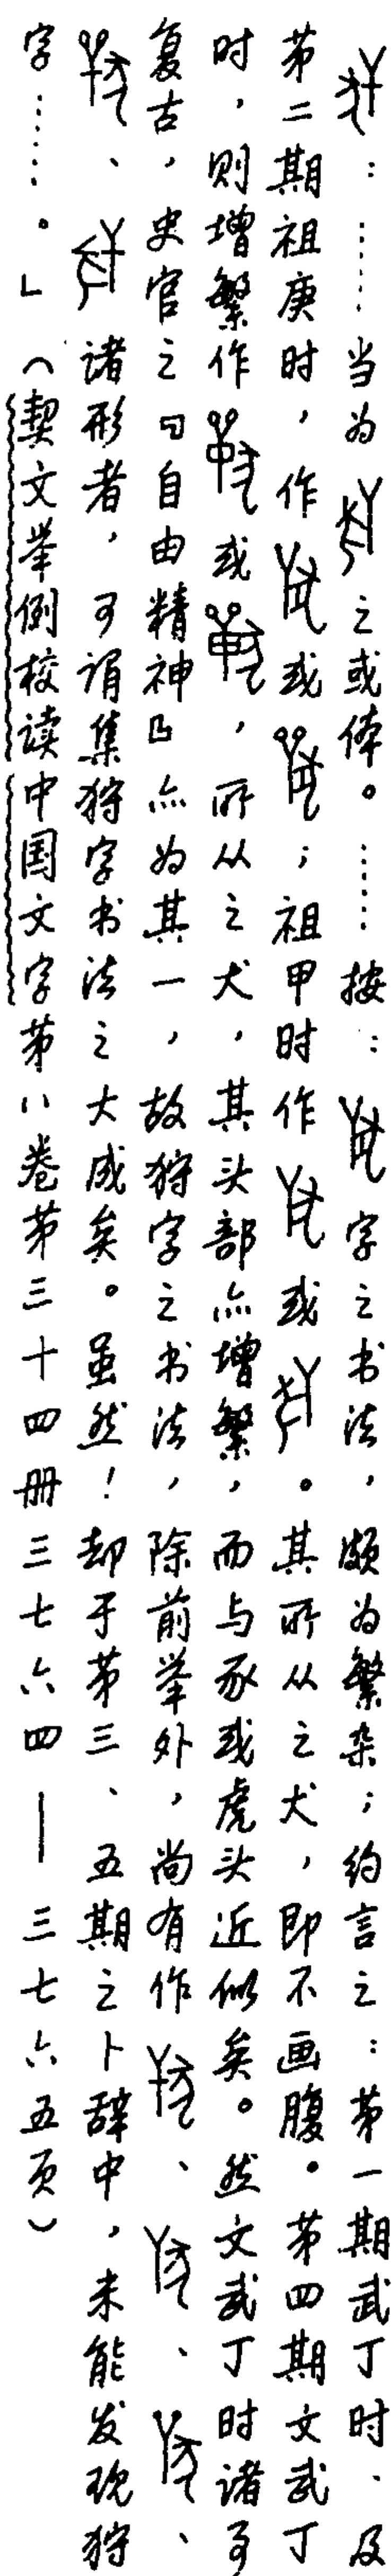 ：……当为之或体。……按：字之书法，颇为繁杂；约言之：第一期武丁时、及
第二期祖庚时，作或；祖甲时作或。其所从之犬，即不画腹。第四期文武丁
时，则增繁作或，所从之犬，其头部亦增繁，而与豕或虎头近似矣。然文武丁时诸
复古，史官之『自由精神』亦为其一，故狩字之书法，除前举外，尚有作、、、
、诸形者，可谓集狩字书法之大成矣。虽然！却于第三、五期之卜辞中，未能发现狩
字……。」（契文举例校读中国文字第八卷第三十四册三七六四—三七六五页）